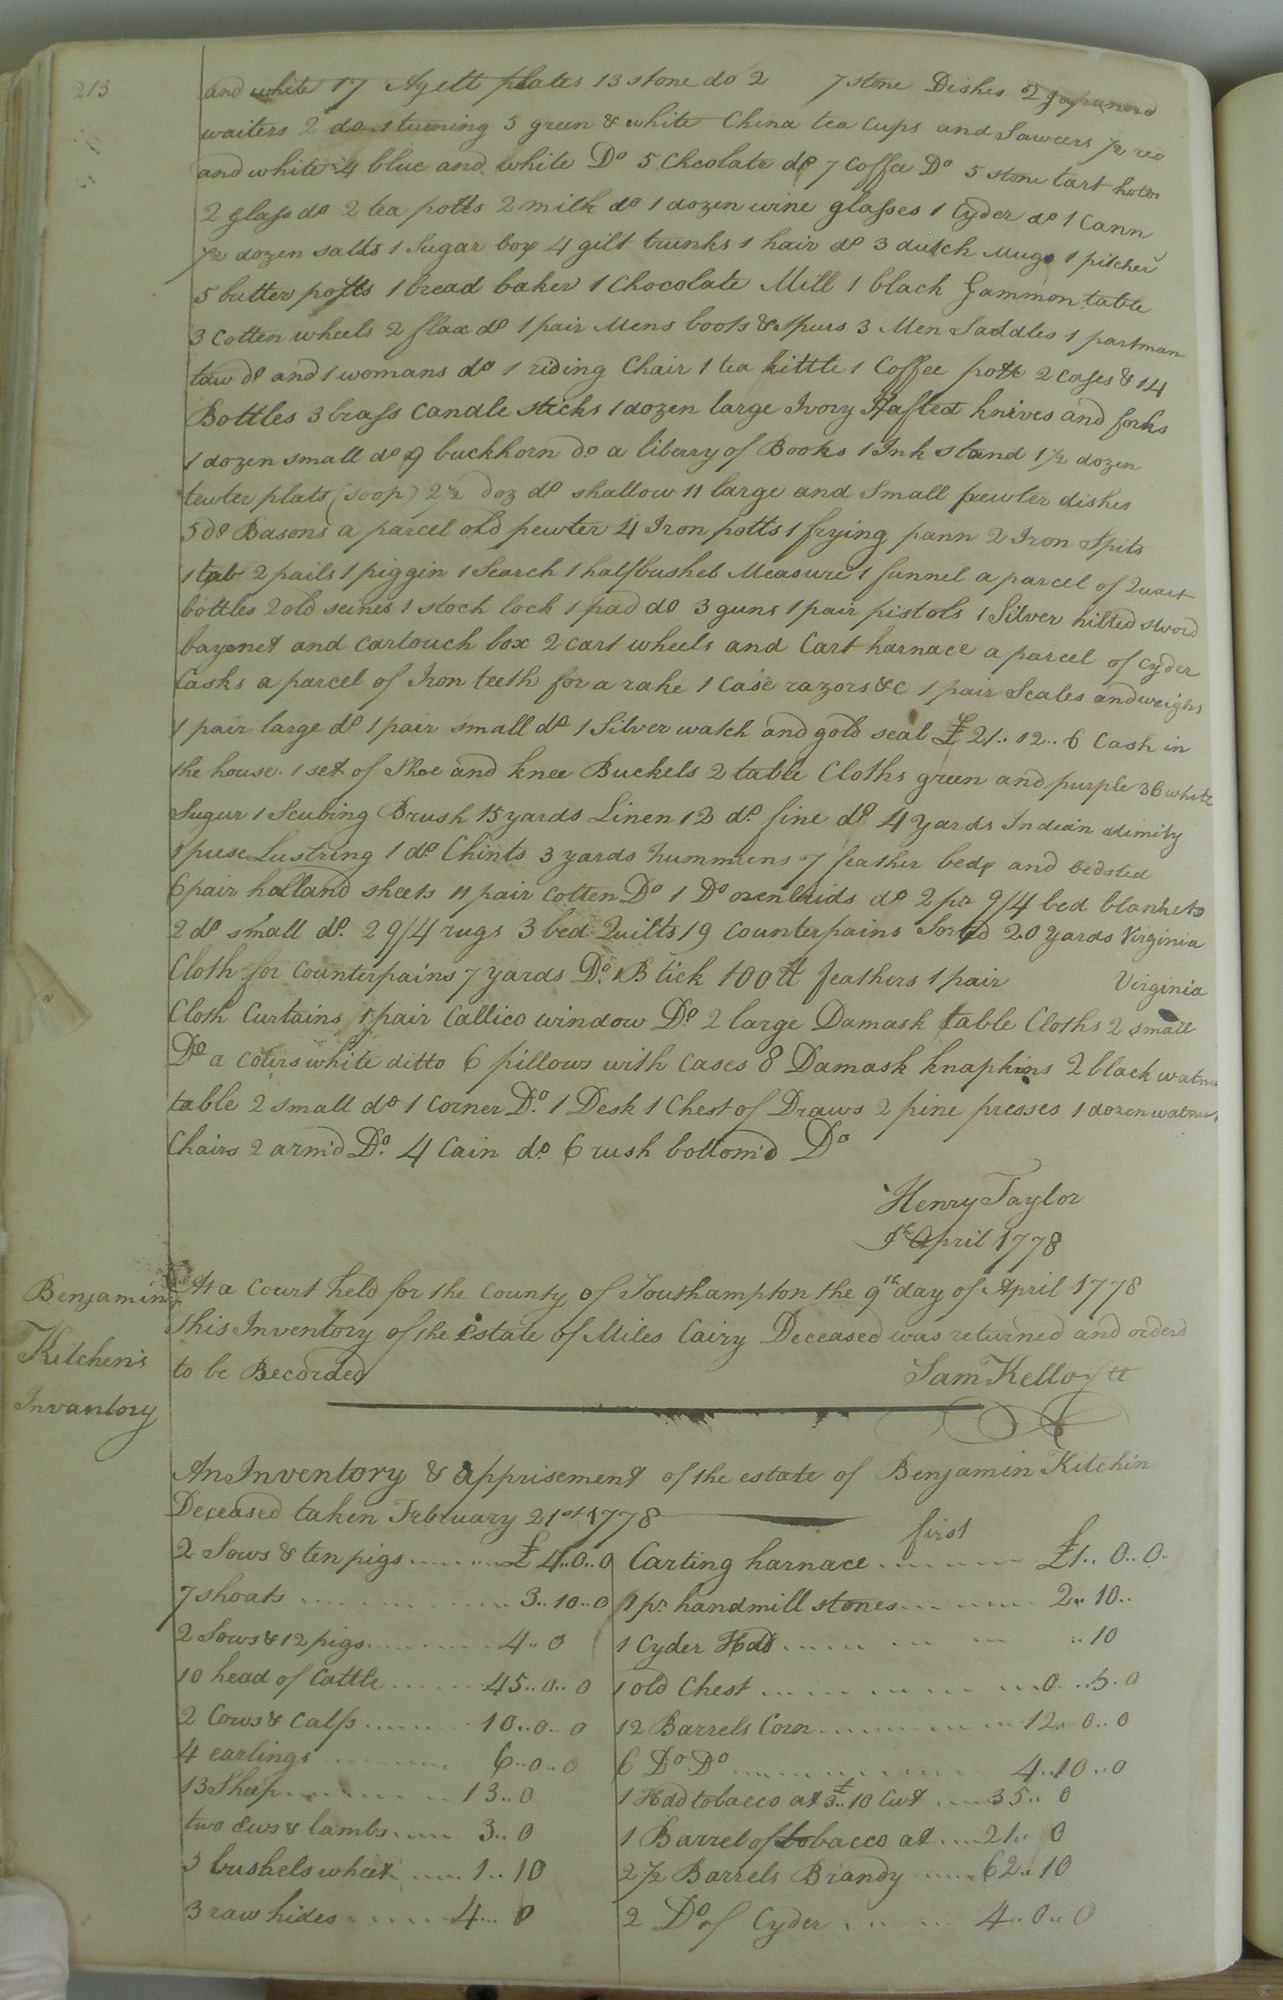 213
and white 17 Agett plates 13 stone do 2 7 stone Dishes 2 japannd
waiters 2 do 1 turning 5 green & white China tea cups and Sawcers 1/2 red
and white 4 blue and white Do 5 Cheolate do 7 Coffee Do 5 stone tart
2 glass do 2 tea potts 2 milk do 1 dozen wine glasses 1 Cyder do 1 Cann
1/2 dozen salts 1 Sugar box 4 gilt trunks 1 hair do 3 dutch mugs 1 pitcher
5 butter potts 1 bread baker 1 Chocolate Mill 1 black Gammon table
3 Cotten wheels 2 flax do 1 pair Mens boots & Spurs 3 Men Saddles 1 partman
taw do and 1 womans do 1 riding Chair 1 tea kittle 1 Coffee pott 2 cases & 14
Bottles 3 brass Candle sticks 1 dozen large Ivory Hafted knives and forks
1 dozen small do 9 buckhorn do a liberry of Books 1 Ink stand 1 1/2 dozen
tewter plats (soop) 2 1/2 doz do shallow 11 large and Small pewter dishes
5 do Basons a parcel old pewter 4 Iron potts 1 frying pann 2 Iron Spits
1 tab 2 pails 1 piggin 1 Search 1 half bushel Measure 1 funnel a parcel of Quart
bottles 2 old seines 1 stock lock 1 pad do 3 guns 1 pair pistols 1 Silver hilted sword
bayonet and cartouch box 2 cart wheels and Cart harnace a parcel of Cyder
Casks a parcel of Iron teeth for a rake 1 Case razors &c 1 pair Scales and weighs
1 pair large do 1 pair small do 1 Silver watch and gold seal £21..12..6 Cash in
the house. 1 set of Shoe and knee Buckels 2 table Cloths green and purple 36 white
Sugur 1 Scubing Brush 15 yards Linen 12 do fine do 4 yards Indian dimity
1 piese Lustring 1 do Chints 3 yards hummuns 7 feather beds and bedsted
6 pair halland sheets 11 pair cotten Do 1 Do do 2 pr 9/4 bed blankets
2 do small do. 2 9/4 rugs 3 bed Quilts 19 Counterpains Sorted 20 yards Virginia
Cloth for Counterpains 7 yards Do. B tick 100 lt feathers 1 pair Virginia
Cloth Curtains 1 pair Callico window Do 2 large Damask table Cloths 2 small
Do a cours white ditto 6 pillows with Cases 8 Damask knapkins 2 black watnu
table 2 small do 1 Corner Do. 1 Desk 1 Chest of Draws 2 pine presses 1 dozen watnut
Chairs 2 armd Do. 4 Cain do. 6 rush bottom'd Do
Henry Taylor
1st April 1778
At a Court held for the County of Southampton the 9th day of April 1778
This Inventory of the Estate of Miles Cairy Deceased was returned and orderd
to be Recorded
Sam Kello
Benjamin
Kitchen's
Invantory
An Inventory & apprisement of the estate of Benjamin Kitchin
Deceased taken February 21st 1778
first
2 Sows & ten pigs £4..0..0
7 shoats 3..10..0
2 Sows & 12 pigs 4..0
10 head of Cattle 45..0..0
2 Cows & Calfs 10..0..0
4 earlings 6..0..0
13 Sheep 13..0
two ews & lambs 3..0
5 bushels wheet 1..10
3 raw hides 4..0
Carting harnace £1..0..0
1 pr handmill stones 2..10..
1 Cyder Hdd ..10
1 old Chest 0..5..0
12 Barrels Corn 12..0..0
6 Do Do 4..10..0
1 Hdd tobacco at £3..10 Cwt 35..0
1 Barrel of tobacco at 21..0
2 1/2 Barrels Brandy 62..10
2 Do of Cyder 4..0..0